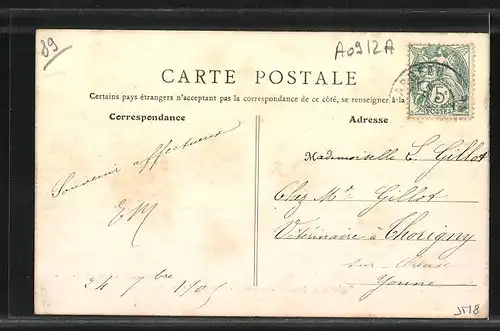 89
A0912A
CARTE POSTALE
Certains pays étrangers n'acceptant pas la correspondance de ce côté, se renseigner à la
Correspondance
Adresse
5c
POSTES
Souvenir affectueux
EM
24 7bre 1905
Mademoiselle L. Gillot
Chez Mr Gillot
Vétérinaire à Thorigny
sur
Yonne